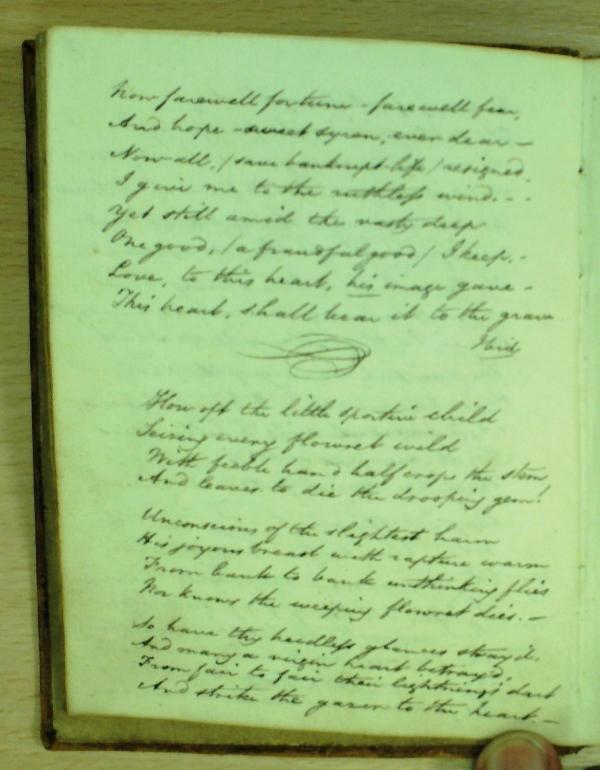 Now farewell fortune - farewell fear,
And hope - sweet syren, ever dear -
Now all, (save bankrupt life) resigned,
I give me to the ruthless wind. - -
Yet still amid the vasty deep
One good, (a fraudful good) I keep, -
Love, to this heart, his image gave -
This heart, shall bear it to the grave
Ibid
How oft the little sportive child
Seizing every flowret wild
With feeble hand half crops the stem,
And leaves to die the drooping gem!
Unconscious of the slightest harm
His joyous breast with rapture warm
From bank to bank unthinking flies
Nor knows the weeping flowret dies. -
So have thy heedless glances stray'd,
And many a virgin heart betray'd,
From fair to fair their lightnings dart
And strike the gazer to the heart. -